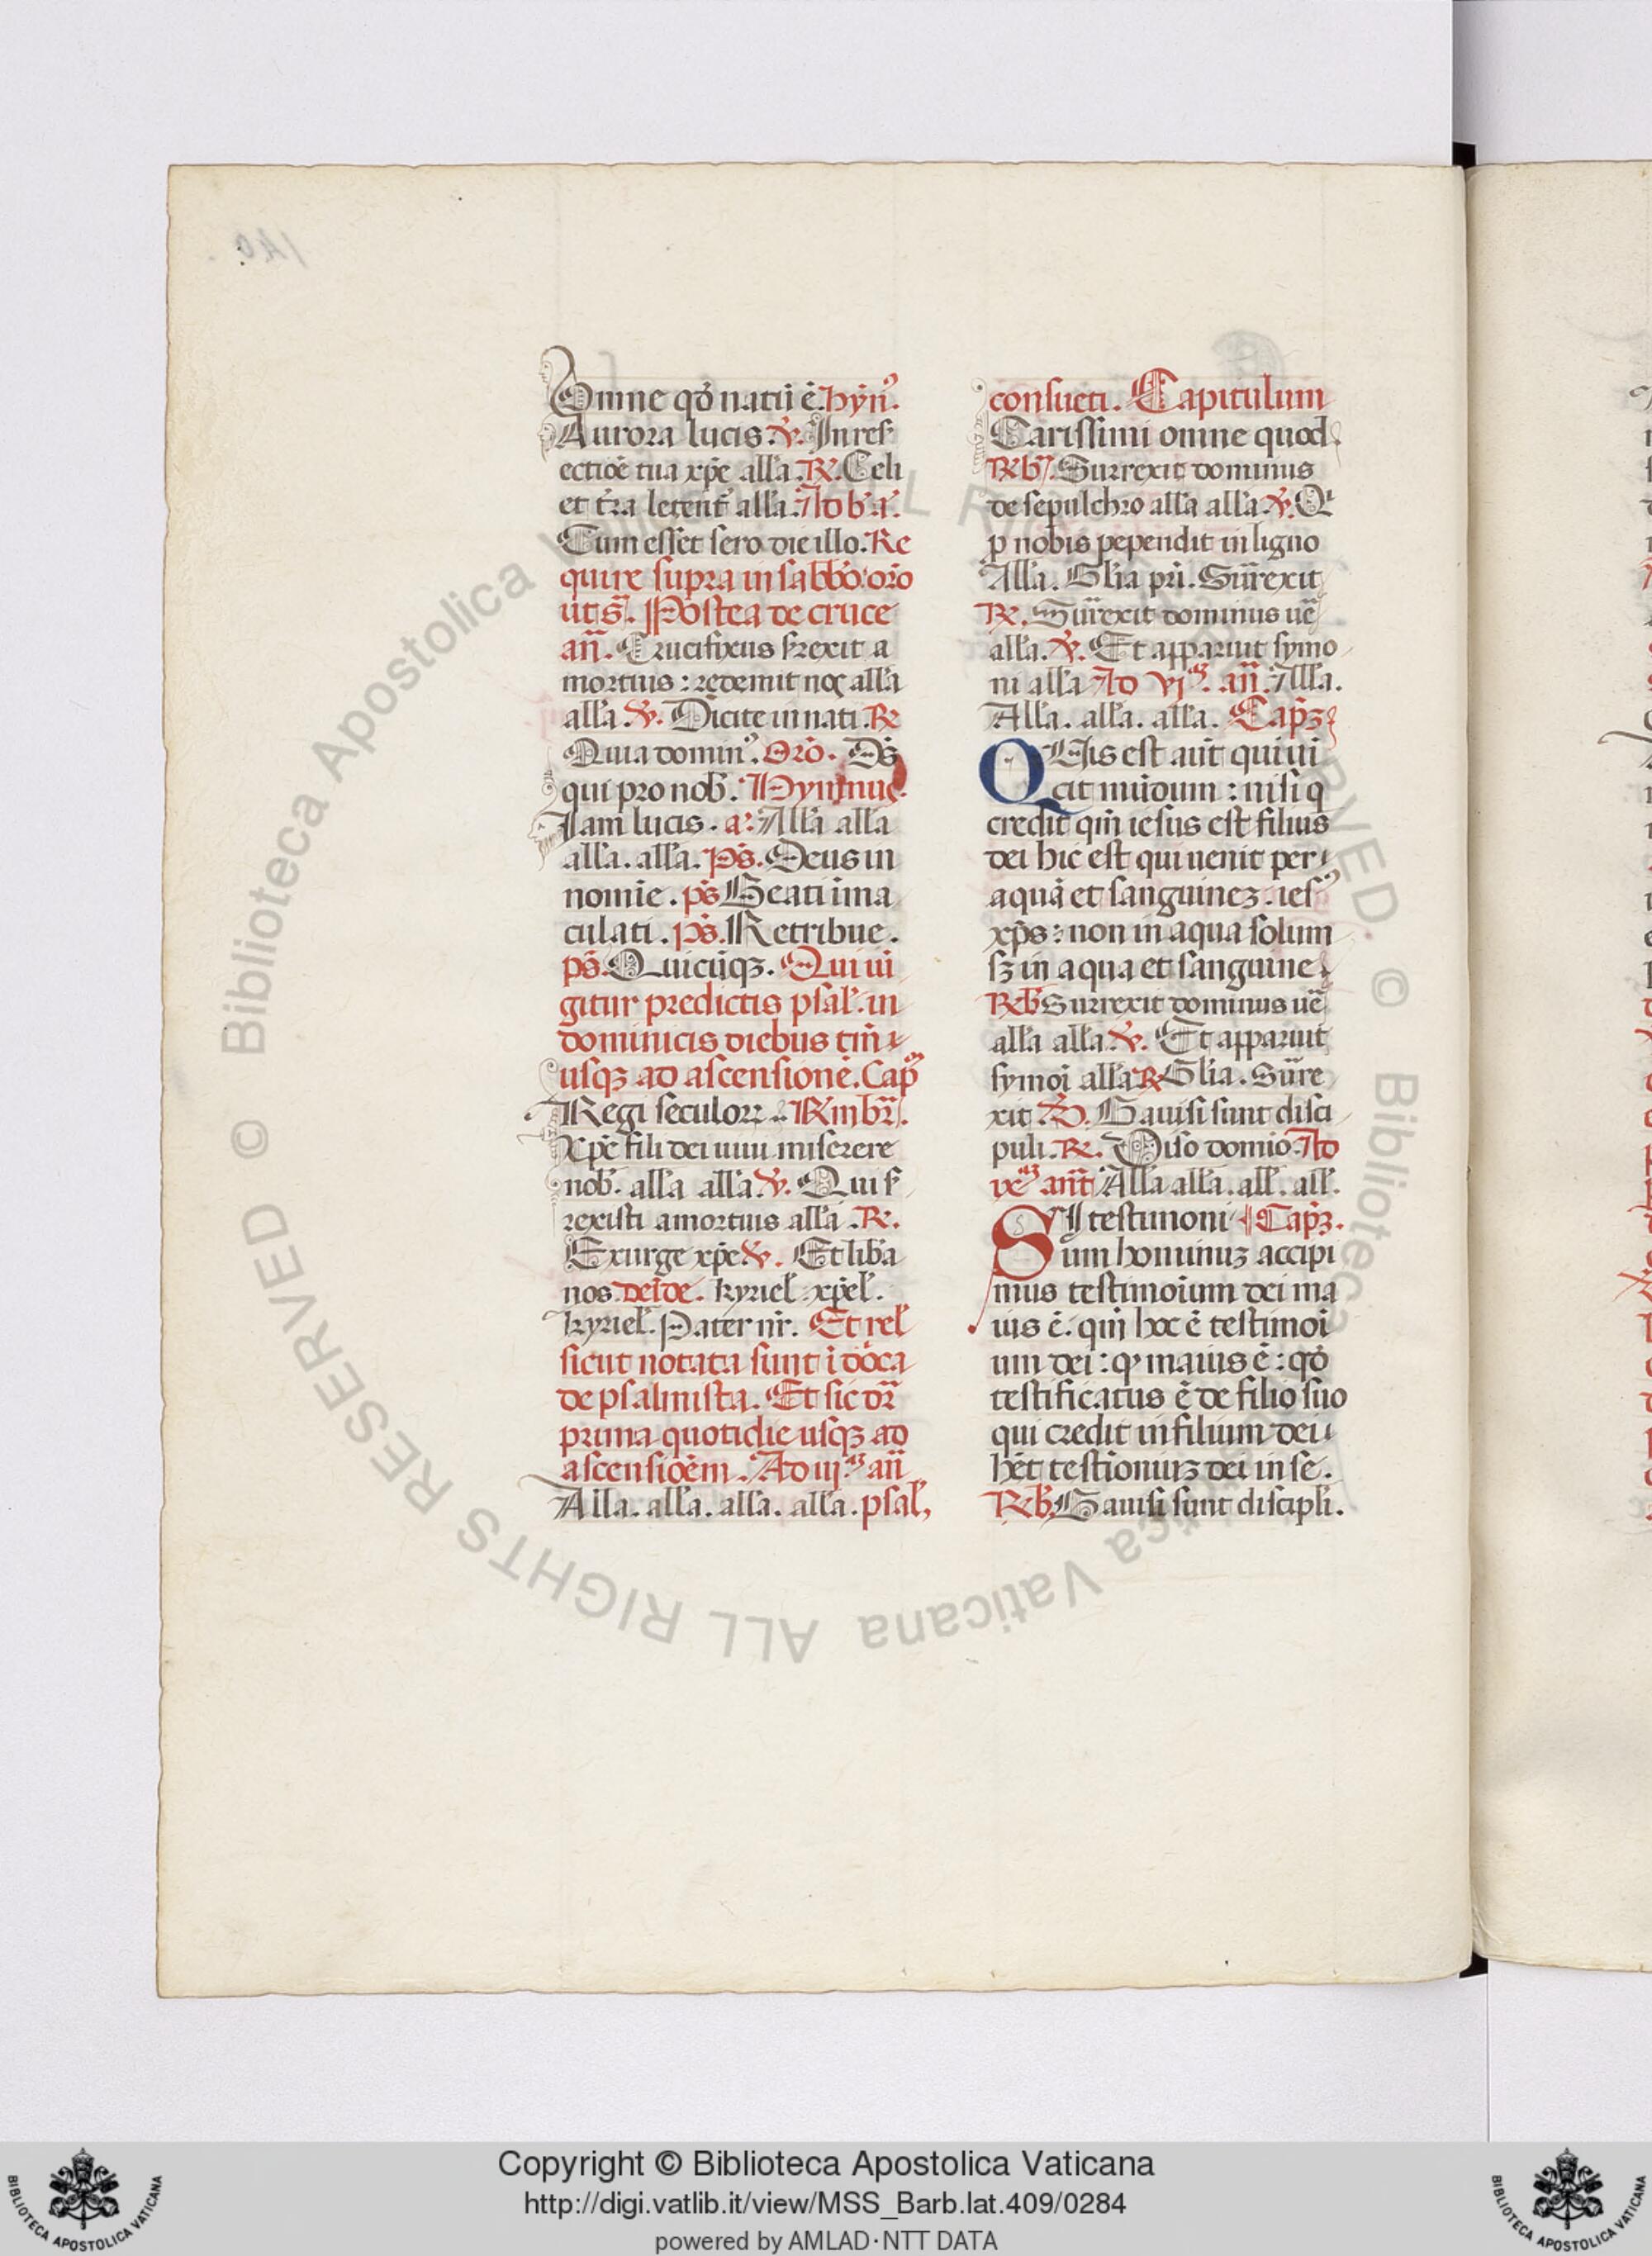 Omne qđ natū ē. hẏn᷒.
Aurora lucis. ℣. In resr̄
ectiōe tua xp̄e all'a. ℟. Celi
et t̄ra letent᷑ all'a. Ad b. a.
Cum esset sero die illo. Re
quire supra in sabb̄o: or̄o
ut s̄. Postea de cruce
an̄. Crucifixus s̄rexit a
mortuis: redemit nos all'a
all'a. ℣. Dicite in nati. ℟
Quia domin᷒. Or̄o. Ds̄
qui pro nob. Hymnus.
Iam lucis. a. All'a all'a
all'a. all'a. ps̄. Deus in
nomīe. ps̄ Beati īma
culati. ps̄. Retribue.
ps̄. Quicūqꝫ. Qui iūi
gitur predictis psal. in
dominicis diebus tm̄
usqꝫ ad ascensionē. Cap̄
Regi seculoꝝ. R̄m br̄.
Xp̄e fili dei uiui miserere
nob. all'a all'a. ℣. Qui s̄
rexisti a mortuis all'a. ℟.
Exurge xp̄e ℣. Et lib̄a
nos. deīde. kyriel. xp̄el.
kyriel. Pater nr̄. Et rel
sicut notata sunt ī dōca
de psalmista. Et sic dr̄
prima quotidie usqꝫ ad
ascensiōem. Ad iij. an̄
All'a. all'a. all'a. all'a. psal,
consueti. Capitulum
Carissimi omne quod
℟b. Surrexit dominus
de sepulchro all'a all'a. ℣. Q
ꝓ nobis pependit in ligno
All'a. Gl'ia pr̄i. Sur̄rexit
℟. Sur̄rexit dominus ue
all'a. ℣. Et apparuit symo
ni all'a Ad vj. an̄. All'a.
All'a. all'a. all'a. Cap̄ꝫ
QUis est aūt qui ui
cit mūdum: nisi q
credit qm̄ iesus est filius
dei hic est qui uenit per
aquā et sanguineꝫ. ies᷒
xp̄s: non in aqua solum
sꝫ in aqua et sanguine
℟b Surrexit dominus ue
all'a all'a. ℣. Et apparuit
symoī all'a ℟ Gl'ia. Sur̄re
xit ℣. Gauisi sunt disci
puli. ℟. Uiso domīo. Ad
ix. ant̄ All'a all'a. all. all.
SI testimoni Cap̄ꝫ.
um hominuꝫ accipi
mus testimoīum dei ma
ius ē. qm̄ hoc ē testimoī
um dei: qꝫ maius ē: qđ
testificatus ē de filio suo
qui credit in filium dei
hēt testīonuiꝫ dei in se.
℟b. Gauisi sunt discipl̄i.
Copyright © Biblioteca Apostolica Vaticana
http://digi.vatlib.it/view/MSS_Barb.lat.409/0284
powered by AMLAD·NTT DATA